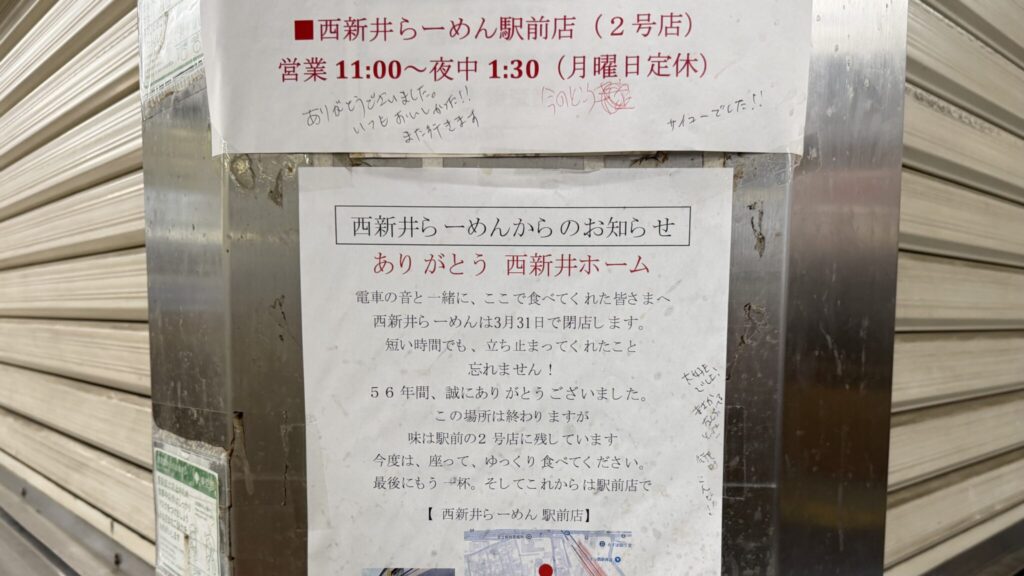 ■西新井らーめん駅前店（２号店）
営業 11:00〜夜中 1:30（月曜日定休）
ありがとうございました。
いつもおいしかった!!
また行きます
サイコーでした!!
西新井らーめんからのお知らせ
ありがとう 西新井ホーム
電車の音と一緒に、ここで食べてくれた皆さまへ
西新井らーめんは3月31日で閉店します。
短い時間でも、立ち止まってくれたこと
忘れません！
５６年間、誠にありがとうございました。
この場所は終わりますが
味は駅前の２号店に残しています
今度は、座って、ゆっくり食べてください。
最後にもう一杯。そしてこれからは駅前店で
【 西新井らーめん 駅前店】